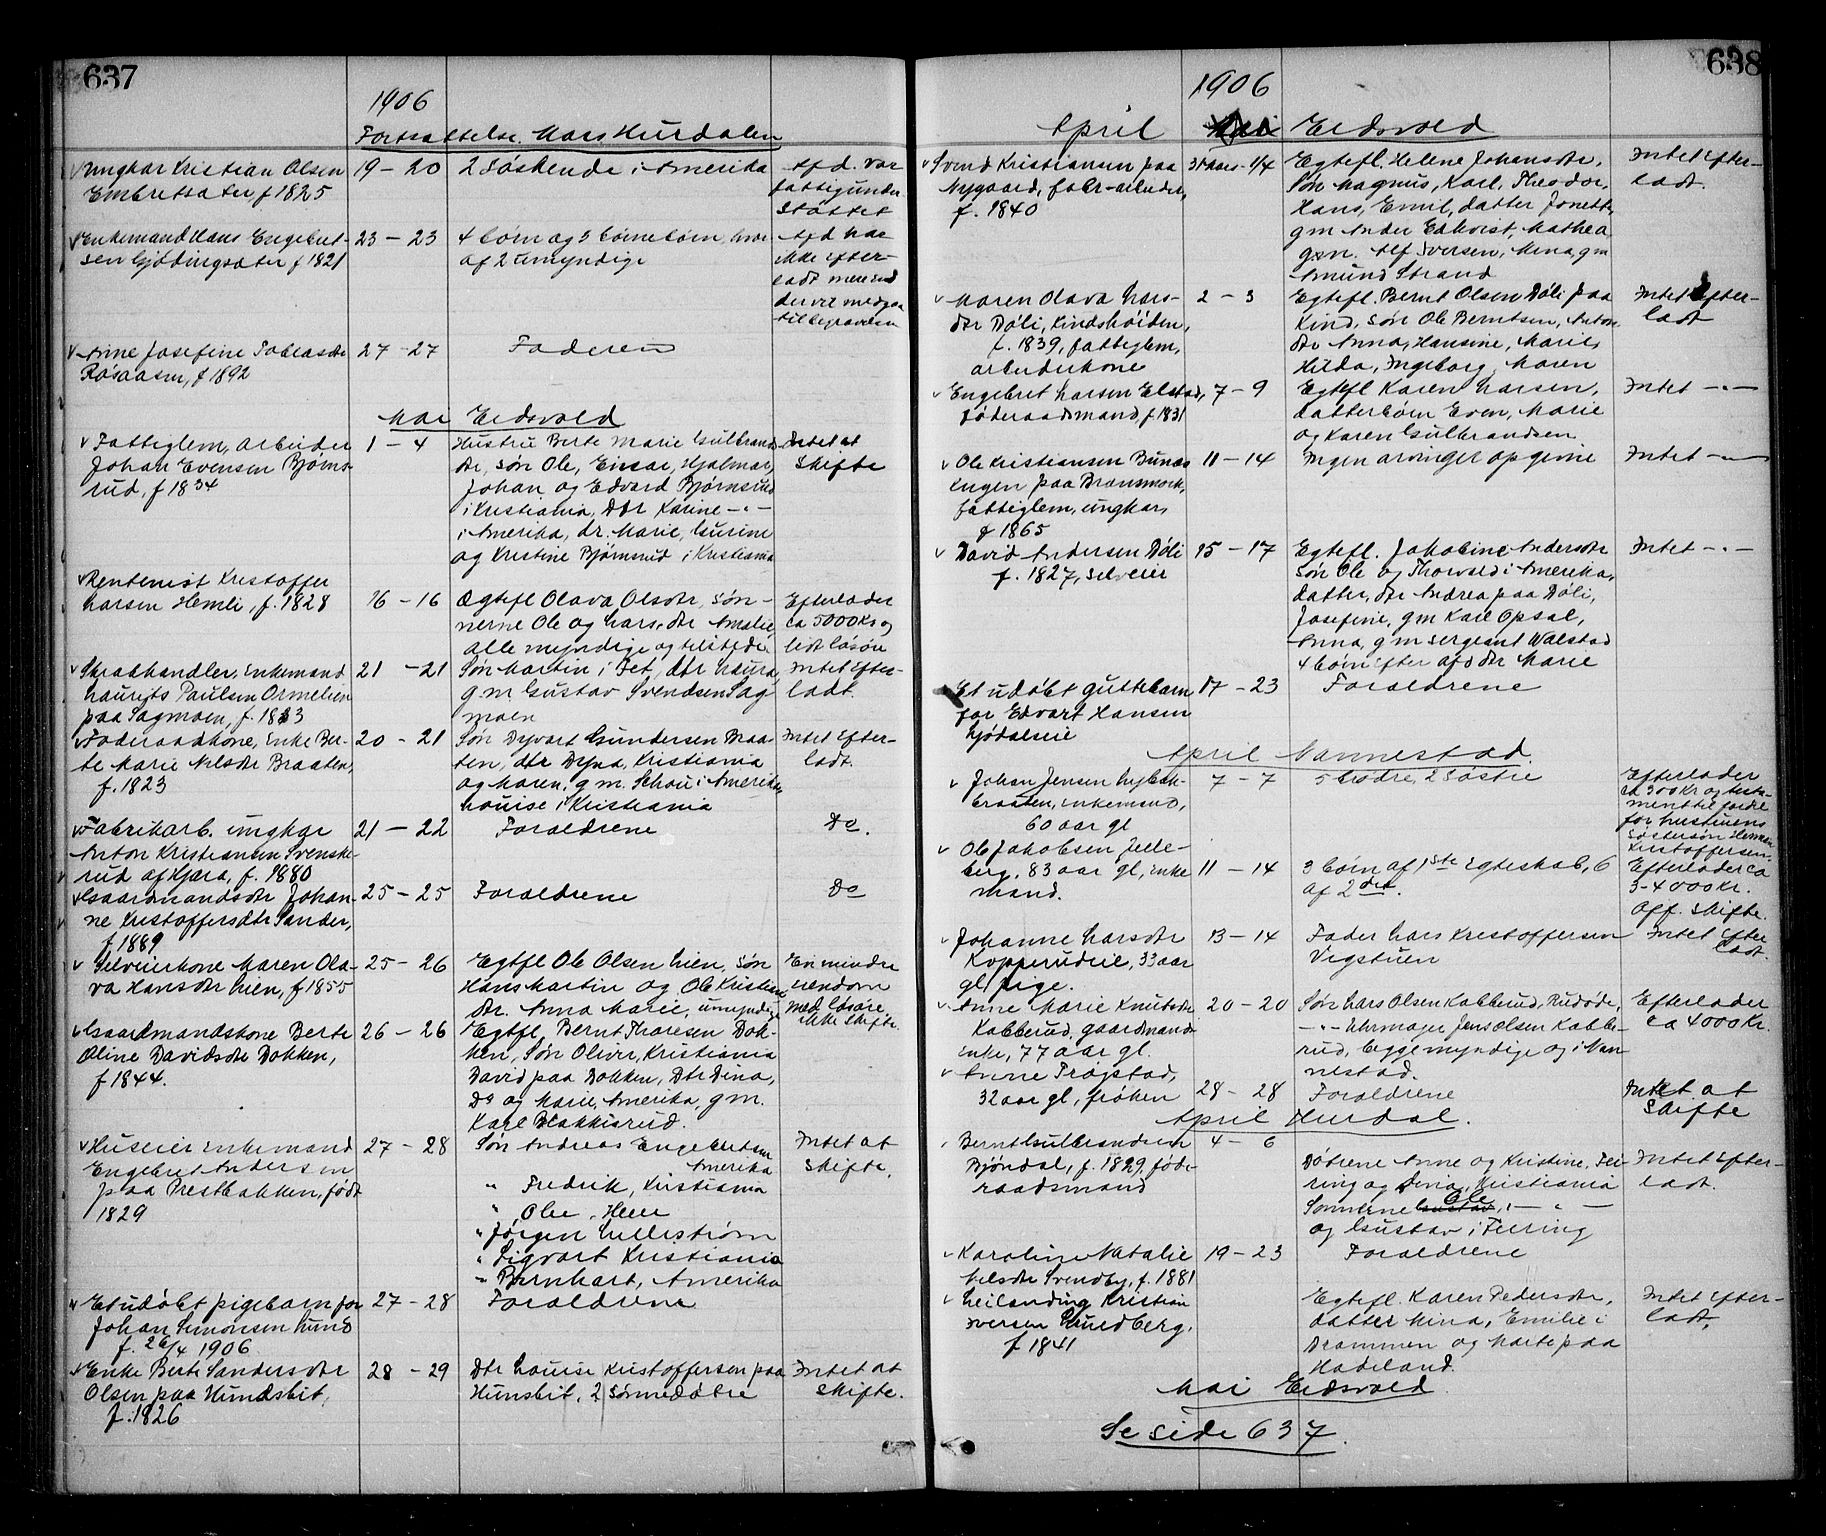 637
1906
Fortsættelse. Mars Hurdalen
Ungkar Kristian Olsen
Embretsæter f 1825
19 – 20
2 Søskende i Amerika
Afd. var
fattigunder
støttet
Enkemand Hans Engebret-
sen Gjødingsæter f 1821
23 – 23
4 børn og 5 børnebørn, hvor
af 2 umyndige
Afd har
ikke efter-
ladt mere end
der vil medgaa
til begravelsen
Anne Josefine Tobiasdtr
Røsaasen, f 1892
27 – 27
Faderen
Mai Eidsvold
Fattiglem, arbeider
Johan Evensen Bjørns-
rud, f 1834
1 – 4
Hustru Berte Marie Gulbrands
dtr, søn Ole, Einar, Hjalmar,
Johan og Edvard Bjørnsrud
i Kristiania, Dtr Karine –"–
i Amerika, dr. Marie, Gurine
og Kristine Bjørnsrud i Kristiania
Intet at
skifte
Rentenist Kristoffer
Larsen Hemli, f. 1828
16 – 16
Ægtefl Olava Olsdtr, søn-
nerne Ole og Lars, dtr Amalie,
alle myndige og tilstede
Efterlader
ca 5000 Kr og
lidt løsøre
Skradhandler, Enkemand
Laurits Paulsen Ormelien
paa Sagmoen, f. 1833
21 – 21
Søn Martin i Fet, dtr Laura,
g m. Gustav Svendsen Sag
moen
Intet efter-
ladt.
Føderaadkone, Enke Ber-
te Marie Nilsdtr Braaten,
f. 1823
20 – 21
Søn Dyvart Gundersen Braa-
ten, dtr Dyna, Kristiania
og Maren, g m. Schou i Amerika,
Louise i Kristiania
Intet efter-
ladt.
Fabrikarb. ungkar
Anton Kristiansen Svenske-
rud af Hjera, f. 1880
21 – 22
Forældrene
Do.
Gaardmandsdtr Johan-
ne Kristoffersdtr Sander,
f 1889
25 – 25
Forældrene
Do
Selveierkone Maren Ola-
va Hansdtr Lien, f 1855
25 – 26
Egtefl Ole Olsen Lien, søn
Hans Martin og Ole Kristian,
dtr. Anna Marie, umyndige
En mindre
eiendom
med løsøre
ikke skifte.
Gaardmandskone Berte
Oline Davidsdtr Dokken,
f 1844.
26 – 26
Egtefl, Bernt Thoresen Dok-
ken, Søn Oliver, Kristiania
David paa Dokken, Dtr Dina,
Do og Marie, Amerika, g m.
Karl Blakkisrud.
Huseier enkemand
Engebret Anders en
paa Prestbakken, født
1829
27 – 28
Søn Andreas Engebretsen
Amerika
" Fredrik, Kristiania
" Ole, Her
" Jørgen Lillestrøm
" Sigvart Kristiania
" Bernhart, Amerika
Intet at
skifte.
Et udøbt pigebarn for
Johan Simonsen Lund
f. 26/4 1906.
27 – 28
Forældrene
Enke Berte Sandersdtr
Olsen paa Hundsbit,
f. 1826
28 – 29
Dtr Louise Kristoffersen paa
Hunsbit, 2 sønnedøtre
Intet at
skifte.
638
1906
April Eidsvold
Svend Kristiansen paa
Nygaard, fabr-arbeider,
f. 1840
31 mars – 1/4
Egtefl. Helene Johansdtr,
Søn Magnus, Karl, Theodor,
Hans, Emil, datter Jonette,
g m Ander Edkvist, Mathea
g m. Alf Iversen, Mina, g m
Amund Strand
Intet efter-
ladt.
Maren Olava Lars-
dtr Døli, Kindshøiden,
f. 1839, fattiglem,
arbeiderkone
2 – 3
Egtefl. Bernt Olsen Døli paa
Kind, søn Ole Berntsen, Anton
dtr Anna, Hansine, Marie,
Hilda, Ingeborg, Maren
Intet efter-
ladt
Engebret Larsen Elstad,
føderaadsmand, f 1831
7 – 9
Egtefl Karen Larsen,
datterbørn Even, Marie
og Karen Gulbrandsen
Intet –"–
Ole Kristiansen Bunæs
engen paa Bransmork,
fattiglem, ungkar,
f 1865
11 – 14
Ingen arvinger opgivne
Intet –"–
David Andersen Døli
f. 1827, selveier
15 – 17
Egtefl. Jakobine Andersdtr
Søn Ole og Thorvald i Amerika,
datter, dtr Andrea paa Døli,
Josefine, g m Karl Opsal,
Anna, g m sergeant Walstad
4 børn efter afd dtr Marie
Intet –"–
Et udøbt guttebarn
for Edvart Hansen
Gjødalseie
17 – 23
Forældrene
April Nannestad.
Johan Jensen Lybek-
braaten, enkemand,
60 aar gl
7 – 7
5 brødre, 2 søstre
Efterlader
ca 300 Kr og testa-
ment til fordel
for hustruens
søstersøn Herman
Kristoffersen.
Ole Jakobsen Julle-
berg, 83 aar gl, enke
mand.
11 – 14
3 børn af 1ste egteskab, 6
af 2det.
Efterlader ca
3-4000 Kr.
Off. skifte.
Johanne Larsdtr
Kopperudeie, 33 aar
gl pige.
13 – 14
Fader Lars Kristoffersen
Vigstuen
Intet efter
ladt.
Anne Marie Knutsdtr
Kabberud, gaardmands
enke, 77 aar gl.
20 – 20
Søn Lars Olsen Kabberud, Rudøde,
–"– Uhrmager Jens Olsen Kabbe-
rud, begge myndige og i Nan
nestad.
Efterlader
ca 4000 Kr.
Anne Trøgstad,
32 aar gl, frøken
28 – 28
Forældrene
Intet at
skifte
April Hurdal.
Bernt Gulbrandsen
Bjøndal, f. 1829. føde-
raadsmand
4 – 6
Døtrene Anne og Kristine, Fei-
ring og Lina, Kristiania
Sønnerne Ole, –"–
og Gustav i Feiring
Intet efter-
ladt.
Karoline Natalie
Nilsdtr Svendby, f. 1881
19 – 23
Forældrene
Leilending Kristian
Iversen Skuedberg,
f 1841
Egtefl. Karen Pedersdtr,
datter Mina, Emilie i
Drammen og Marte paa
Hadeland.
Intet efter-
ladt.
Mai Eidsvold
Se side 637.